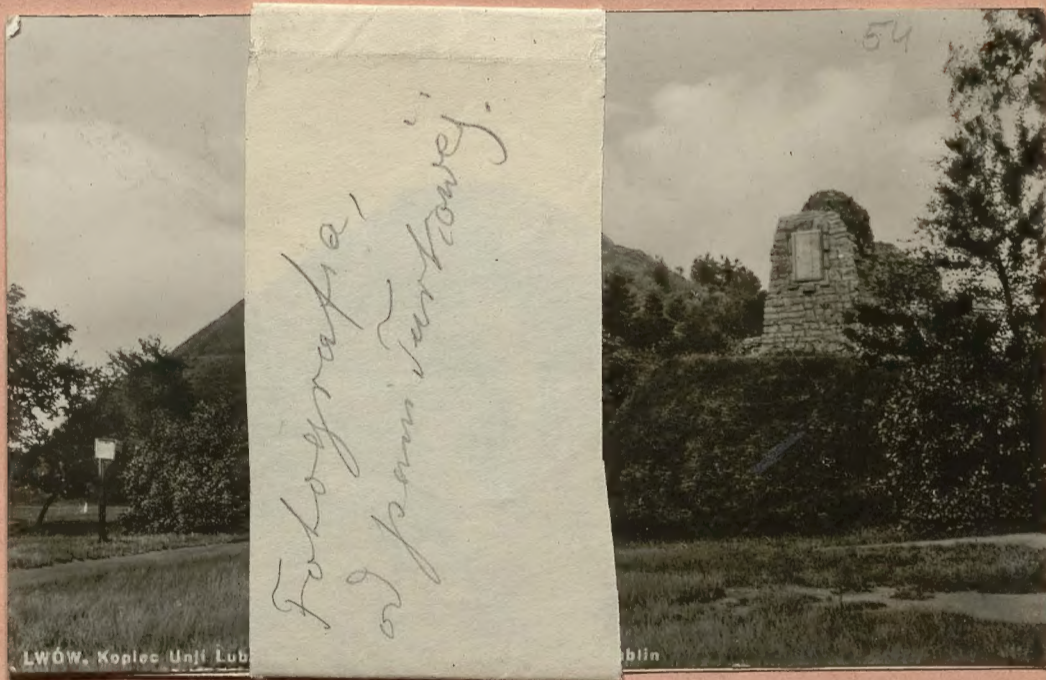 54
Fotografia,
od pani Turkowej.
LWÓW. Kopiec Unji Lub
blin